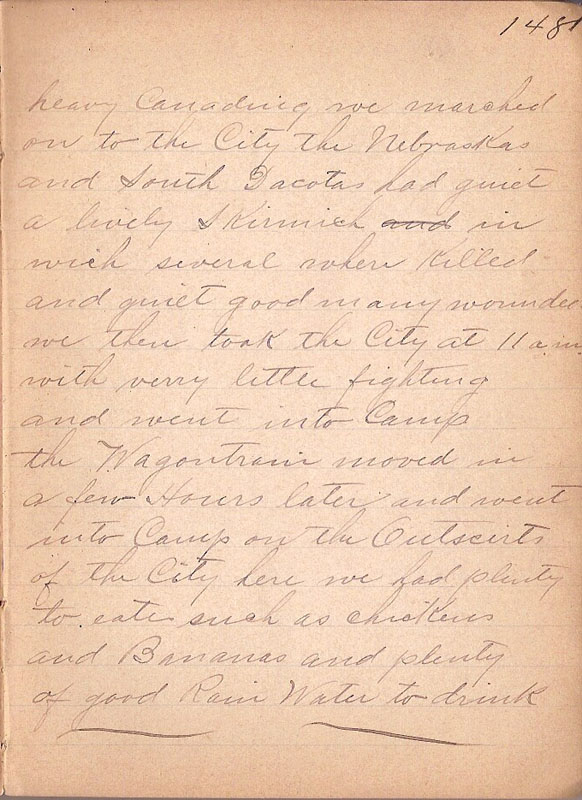 148
heavy Canading we marched
on to the City the Nebraskas
and South Dacotas had quiet
a lively Skirmich and in
wich several where Killed
and quiet good many wounded
we then took the City at 11 a.m
with verry little fighting
and went into Camp
the Wagontrain moved in
a few Hours later and went
into Camp on the Outscirts
of the City here we had plenty
to eate such as chickens
and Bananas and plenty
of good Rain Water to drink